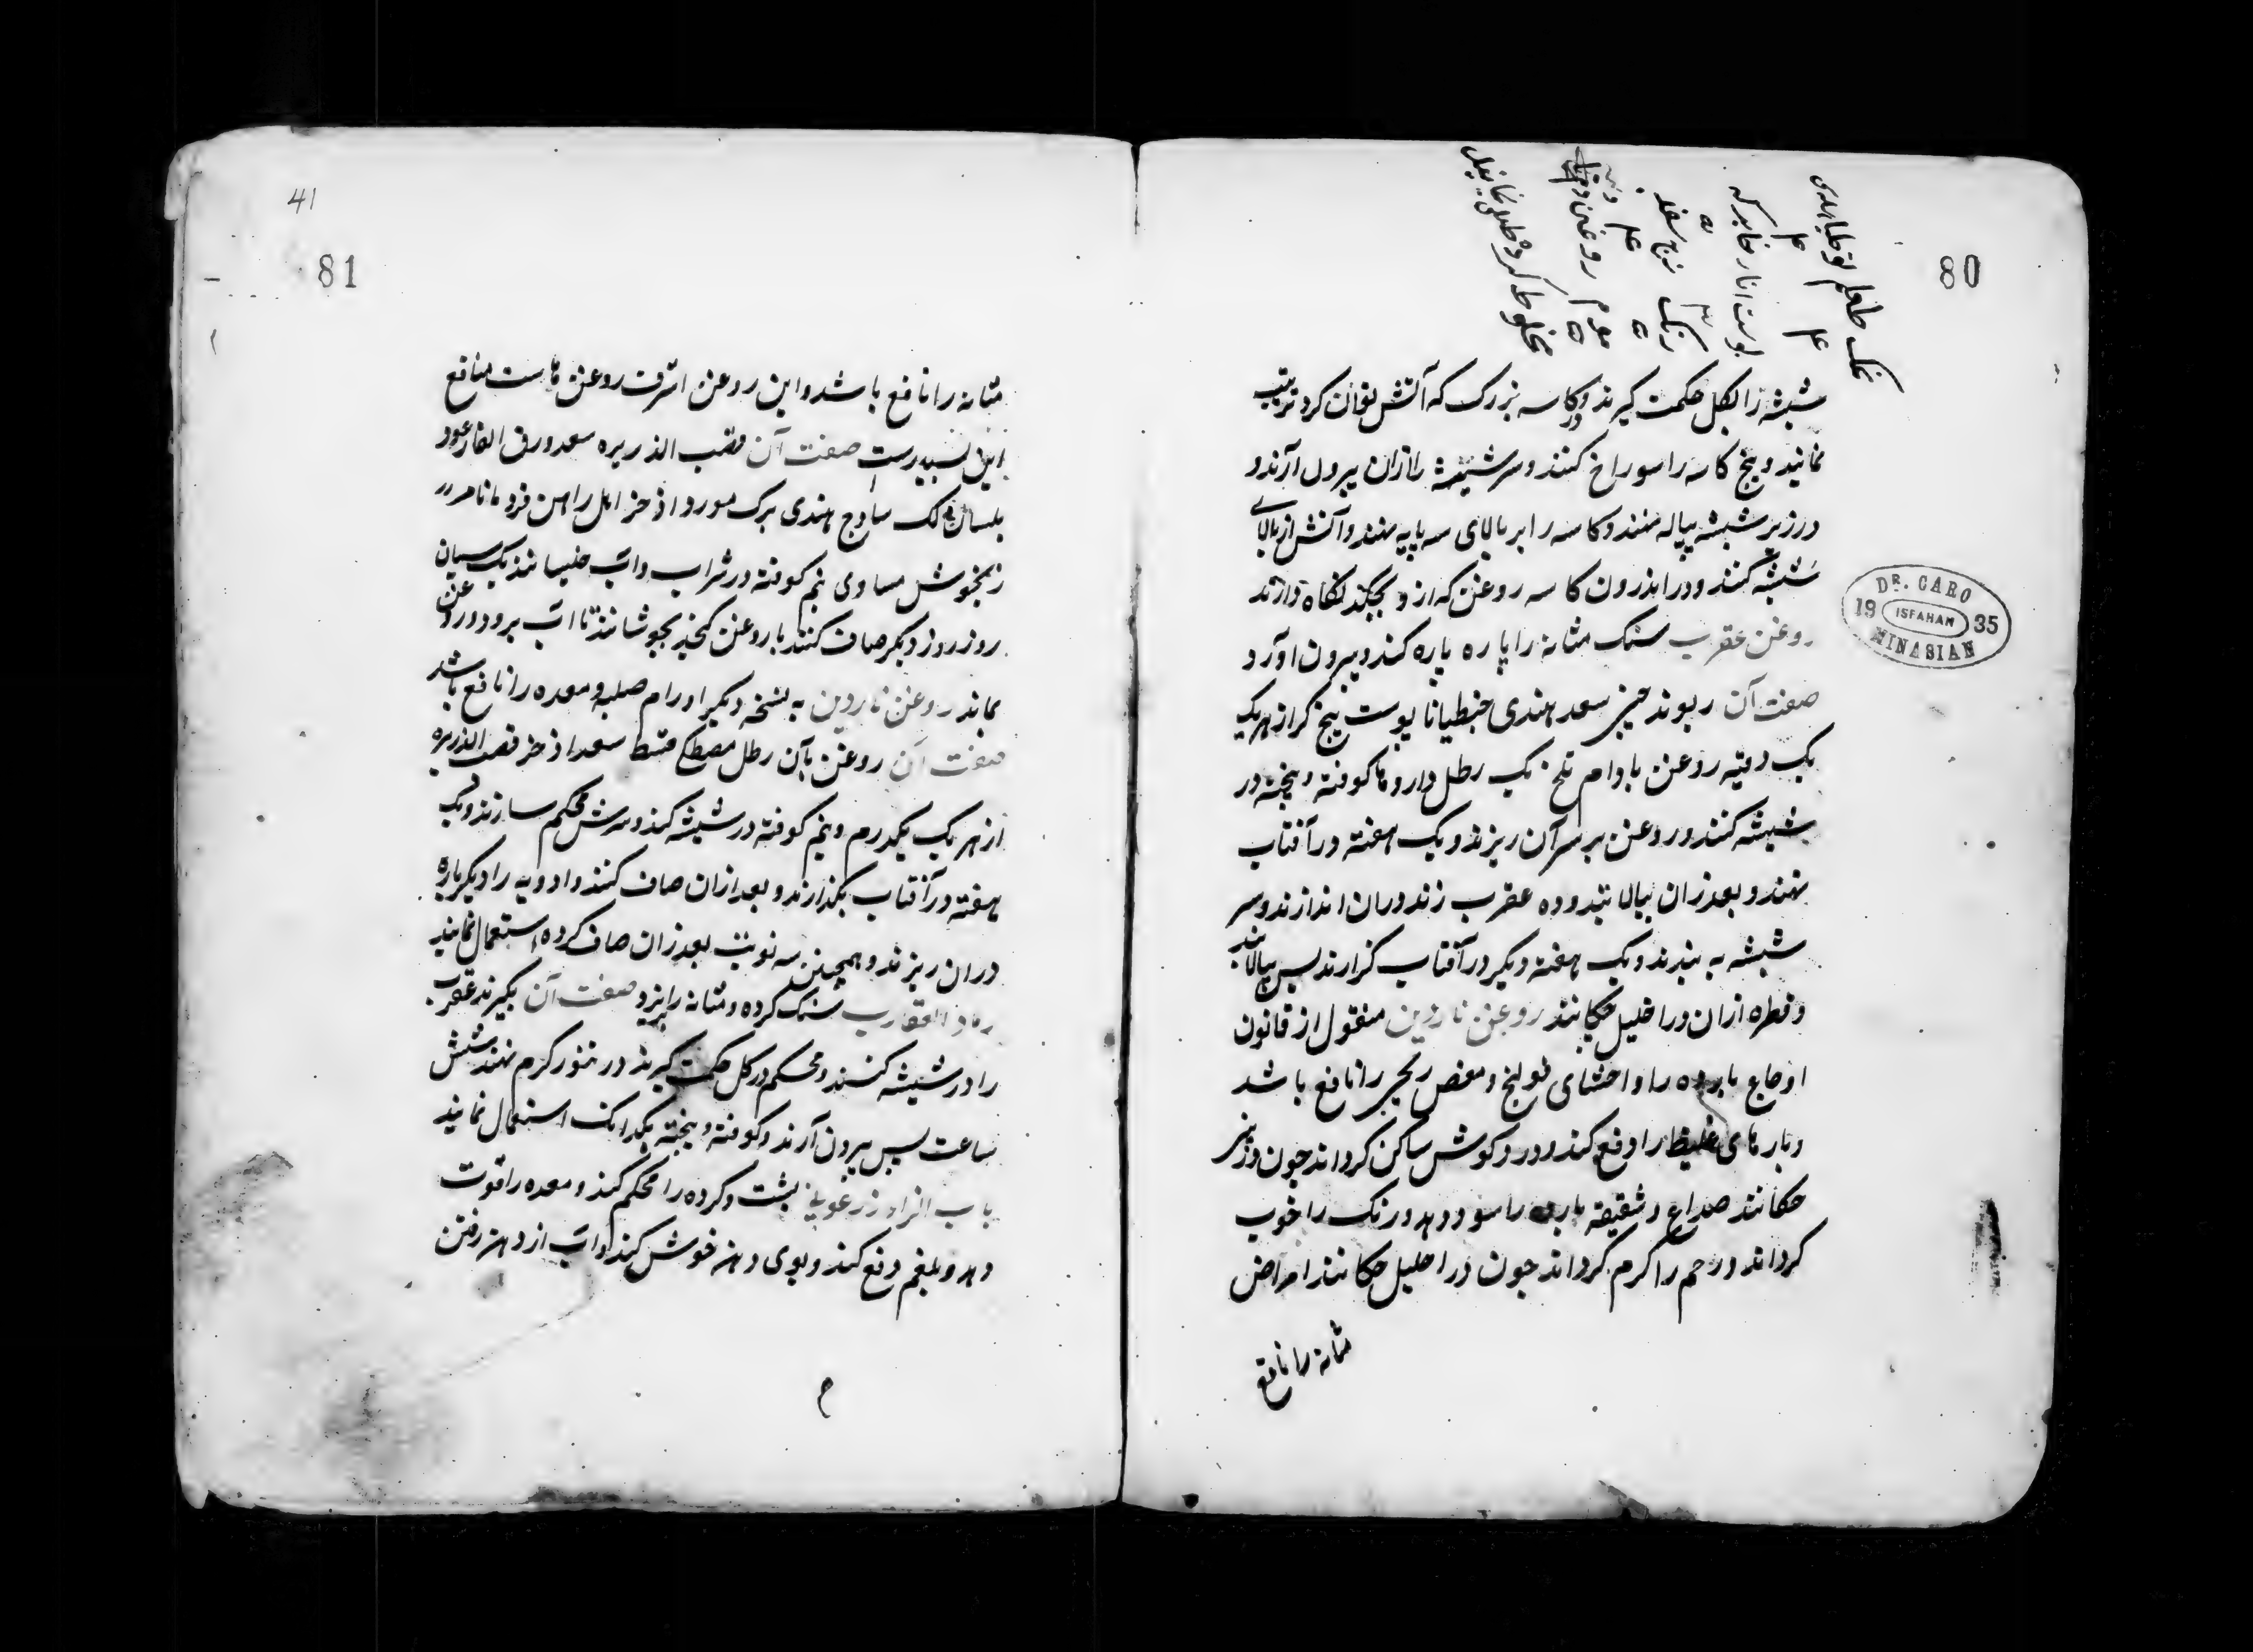 80
نمک طعام توطیا هندی
پوست انار
مخلوط کرده طلی نمایند
شیشه را بکل حکمت گیرند و در کاسه بزرک که آتش توان کرد ترتیب
نمایند و بیخ کاسه را سوراخ کنند و سر شیشه را ازان بیرون آرند و
در زیر شیشه پیاله نهند و کاسه را بر بالای سه پایه نهند و آتش از بالای
شیشه کنند و در اندرون کاسه روغن که ازو بچکد نگاه دارند
روغن عقرب سنک مثانه را پاره پاره کند و بیرون آورد
صفت آن ریوند چینی سعد هندی جنطیانا پوست بیخ کبر از هر یک
یک وقیه روغن بادام تلخ یک رطل داروها کوفته و بیخته در
شیشه کنند و روغن بر سر آن ریزند و یک هفته در آفتاب
نهند و بعد زان بپالایند و ده عقرب زنده دران اندازند و سر
شیشه به بندند و یک هفته دیگر در آفتاب گزارند پس بپالایند
و قطره ازان در احلیل چکانند روغن ناردین منقول از قانون
اوجاع بارده را و احشای قولنج و مغص ریحی را نافع باشد
و بادهای غلیظ را دفع کند و درد کوش ساکن کرداند چون در بینی
چکانند صداع و شقیقه بارده را سود دهد و رنک را خوب
کرداند و رحم را کرم کرداند چون در احلیل چکانند امراض
مثانه را نافع
DR. CARO
19 ISFAHAN 35
MINASIAN
41
81
مثانه را نافع باشد و این روغن اشرف روغن هاست منافع
این بسیار است صفت آن قصب الذریره سعد ورق الغار عود
بلسان لک ساذج هندی برک مورد اذخر ابهل راسن قردمانا مر
زنجوش مساوی نیم کوفته در شراب و آب خیسانند یک شبان
روز روز دیکر صاف کنند با روغن کنجد بجوشانند تا آب برود و روغن
بماند روغن ناردین به نسخه دیکر اورام صلبه و معده را نافع باشد
صفت آن روغن بان رطل مصطکی قسط سعد اذخر قصب الذریره
از هر یک یکدرم و نیم کوفته در شیشه کنند و سرش محکم سازند و یک
هفته در آفتاب بگذارند و بعد ازان صاف کنند و ادویه را دیکر باره
دران ریزند و همچنین سه نوبت بعد زان صاف کرده استعمال نمایند
رماد العقارب سنک کرده و مثانه را بریزد صفت آن بگیرند عقرب
را در شیشه کنند و محکم در کل حکمت گیرند در تنور کرم نهند شش
ساعت پس بیرون آرند و کوفته و بیخته یکدانک استعمال نمایند
باب الزاء زرعونی پشت و کرده را محکم کند و معده را قوت
دهد و بلغم دفع کند و بوی دهن خوش کند و آب از دهن رفتن